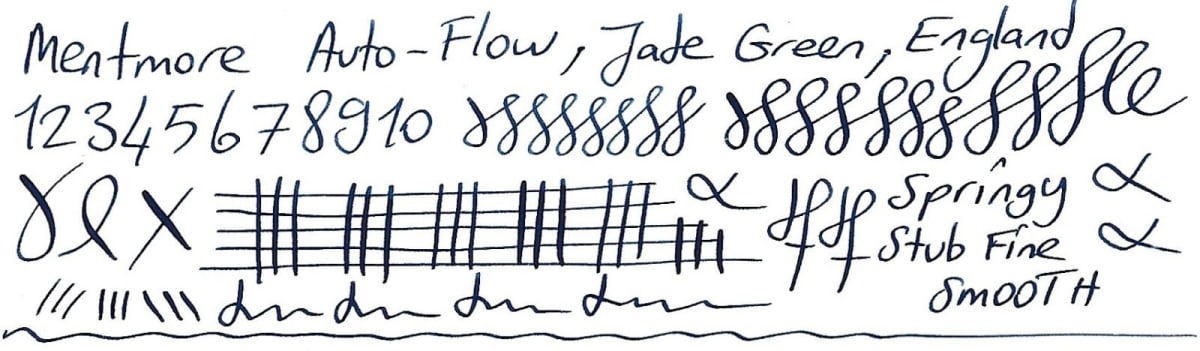 Mentmore Auto-Flow, Jade Green, England
1 2 3 4 5 6 7 8 9 10
Springy
Stub Fine
SMOOTH